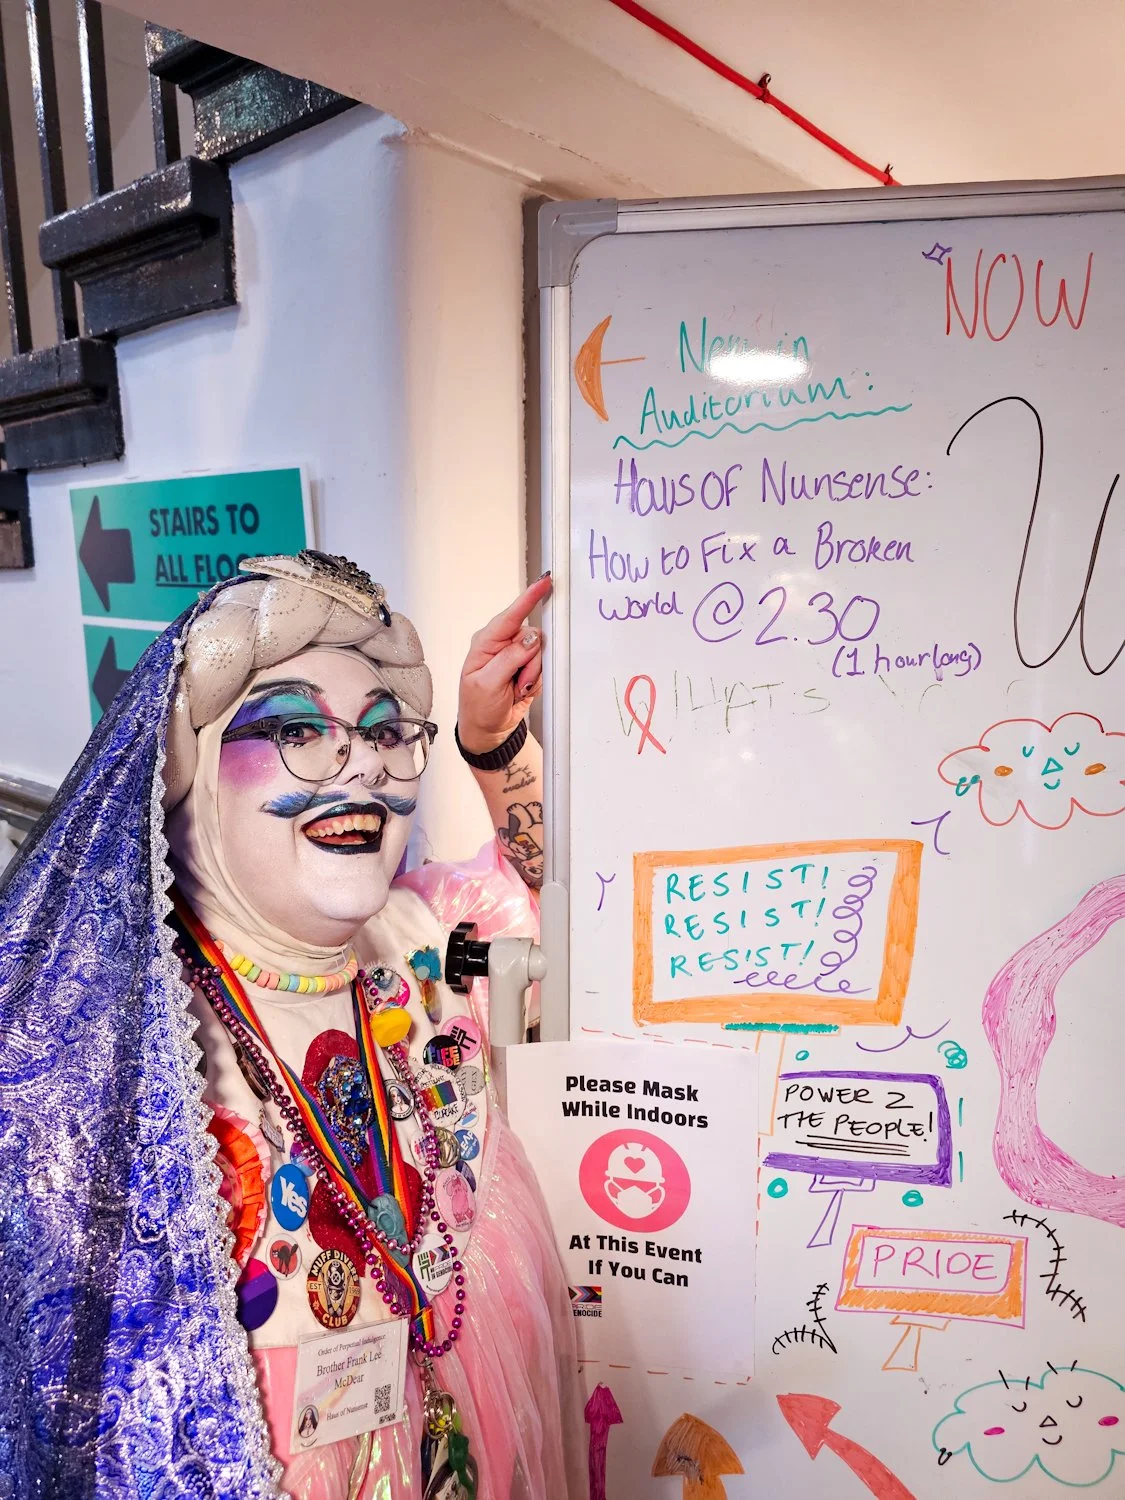 STAIRS TO
ALL
NOW
Now in
Auditorium:
Haus of Nunsense:
How to Fix a Broken
World @ 2.30
(1 hour long)
WHAT'S
RESIST!
RESIST!
RESIST!
Please Mask
While Indoors
At This Event
If You Can
PRIDE
POWER 2
THE PEOPLE!
PRIDE
Yes
MUFF DIVERS
EST
CLUB
Order of Perpetual Indulgence
Brother Frank Lee
McDear
Haus of Nunsense